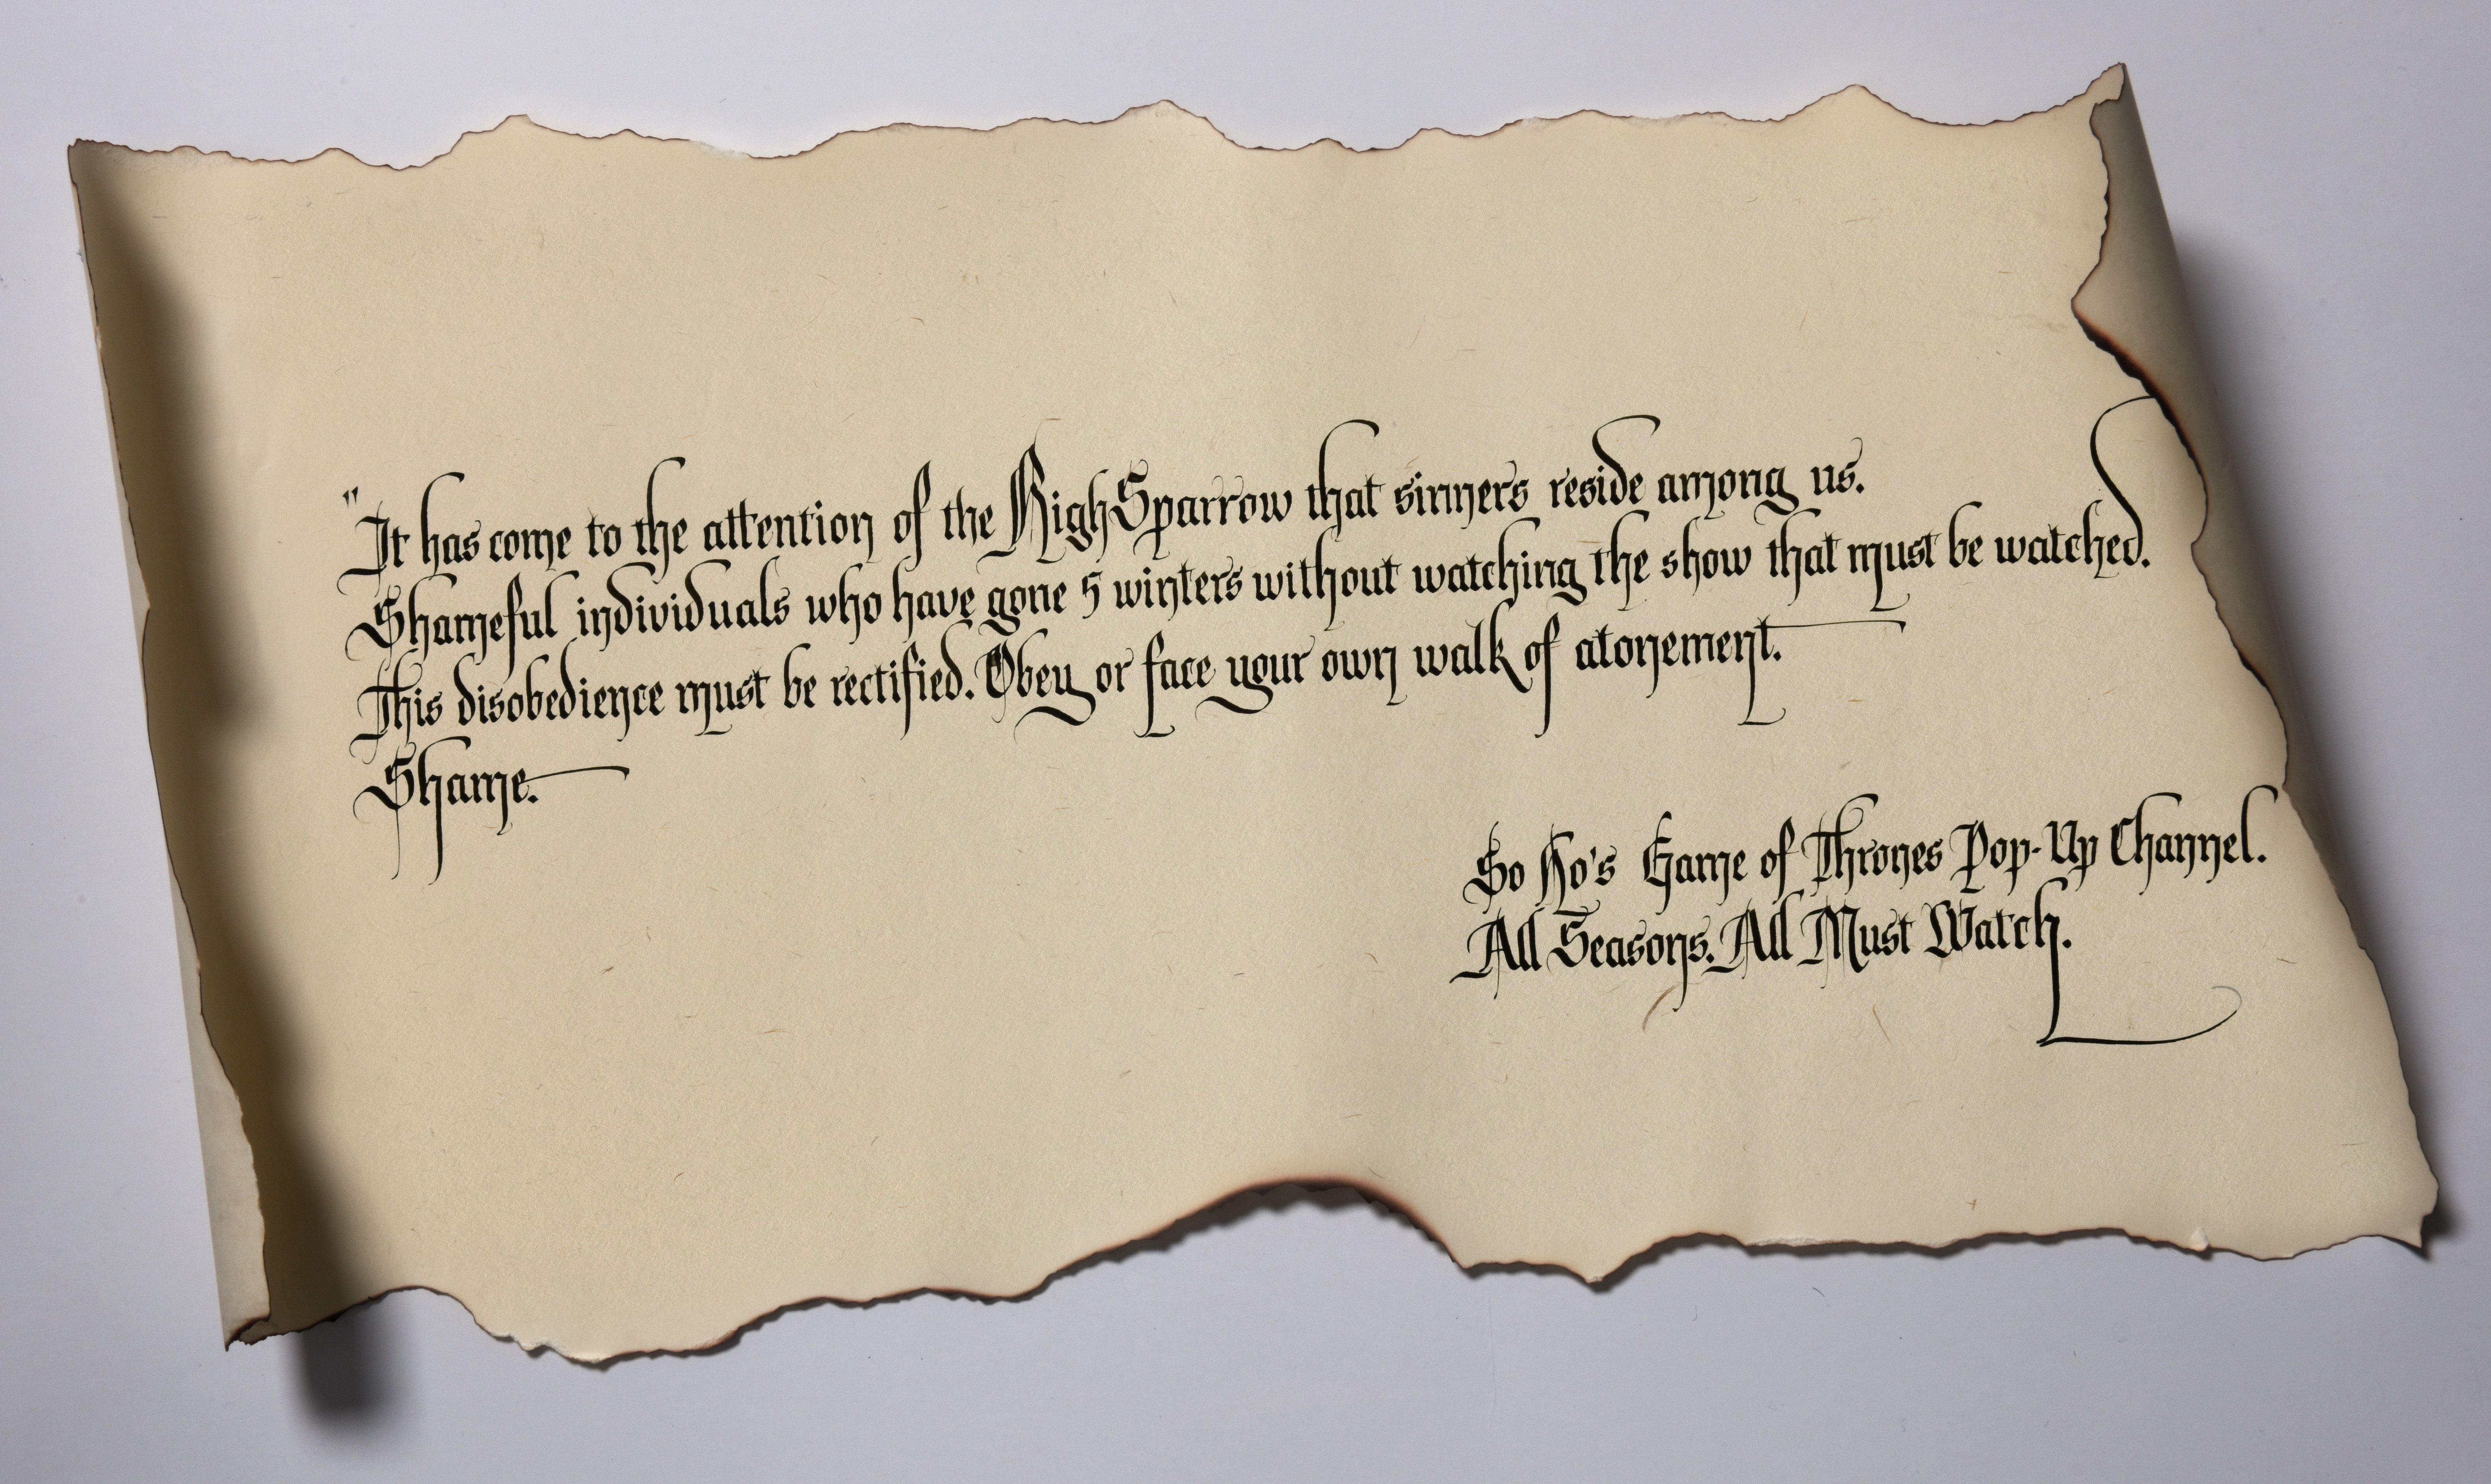 "It has come to the attention of the High Sparrow that sinners reside among us.
Shameful individuals who have gone 5 winters without watching the show that must be watched.
This disobedience must be rectified. Obey or face your own walk of atonement.
Shame.
SoHo's Game of Thrones Pop-Up Channel.
All Seasons. All Must Watch.